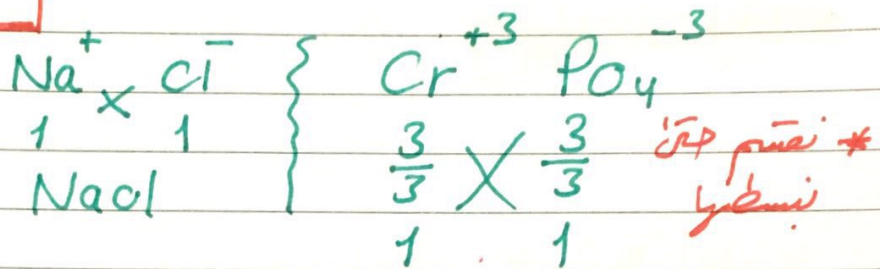 Na⁺ × Cl⁻
1 1
Nacl
Cr⁺³ PO₄⁻³
3/3 × 3/3
1 1
* نقسم حتى
نبسطها